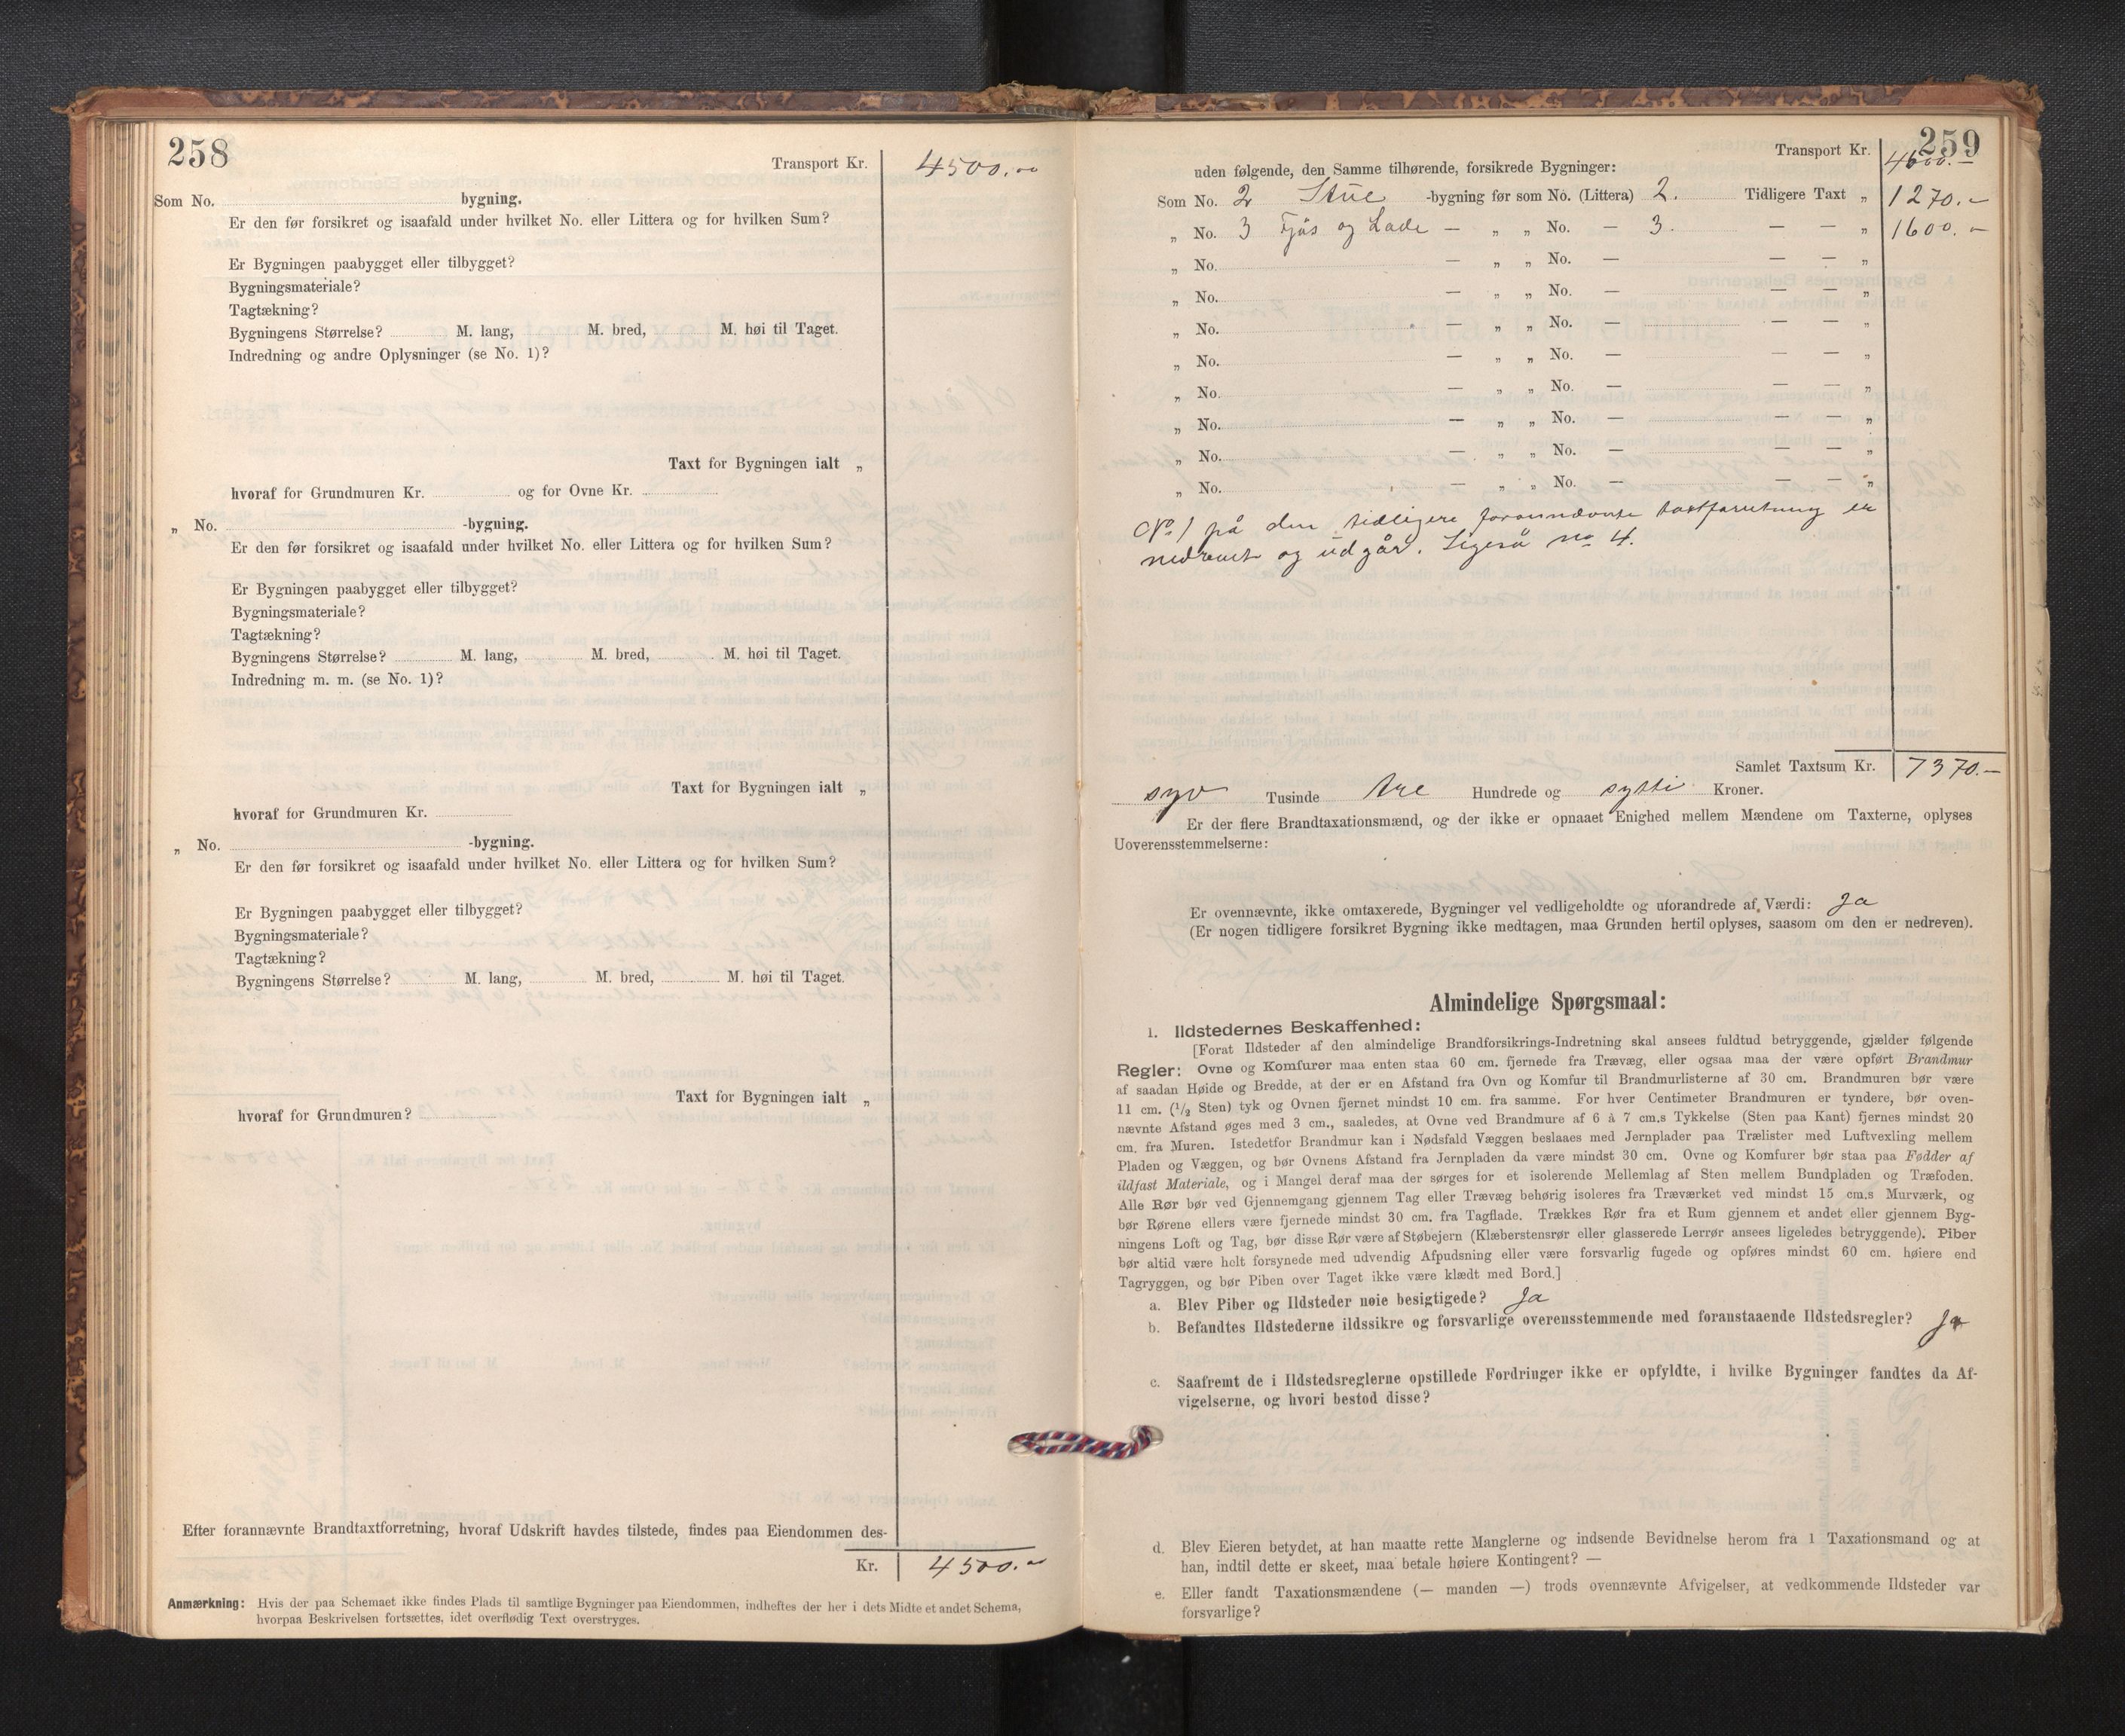 258
Transport Kr. 4500.00
Som No. bygning.
Er den før forsikret og isaafald under hvilket No. eller Littera og for hvilken Sum?
Er Bygningen paabygget eller tilbygget?
Bygningsmateriale?
Tagtækning?
Bygningens Størrelse? M. lang, M. bred, M. høi til Taget.
Indredning og andre Oplysninger (se No. 1)?
Taxt for Bygningen ialt „
hvoraf for Grundmuren Kr. og for Ovne Kr.
„ No. -bygning.
Er den før forsikret og isaafald under hvilket No. eller Littera og for hvilken Sum?
Er Bygningen paabygget eller tilbygget?
Bygningsmateriale?
Tagtækning?
Bygningens Størrelse? M. lang, M. bred, M. høi til Taget.
Indredning m. m. (se No. 1)?
Taxt for Bygningen ialt „
hvoraf for Grundmuren Kr.
„ No. -bygning.
Er den før forsikret og isaafald under hvilket No. eller Littera og for hvilken Sum?
Er Bygningen paabygget eller tilbygget?
Bygningsmateriale?
Tagtækning?
Bygningens Størrelse? M. lang, M. bred, M. høi til Taget.
Taxt for Bygningen ialt „
hvoraf for Grundmuren?
Efter forannævnte Brandtaxtforretning, hvoraf Udskrift havdes tilstede, findes paa Eiendommen des-
Kr. 4500.00
Anmærkning: Hvis der paa Schemaet ikke findes Plads til samtlige Bygninger paa Eiendommen, indheftes der her i dets Midte et andet Schema,
hvorpaa Beskrivelsen fortsættes, idet overflødig Text overstryges.
259
Transport Kr. 4500.—
uden følgende, den Samme tilhørende, forsikrede Bygninger:
Som No. 2 Stue -bygning før som No. (Littera) 2. Tidligere Taxt „ 1270.—
„ No. 3 Fjøs og Lade — „ „ No. — 3. — — „ 1600.—
„ No. — „ „ No. — — — „
„ No. — „ „ No. — — — „
„ No. — „ „ No. — — — „
„ No. — „ „ No. — — — „
„ No. — „ „ No. — — — „
„ No. — „ „ No. — — — „
„ No. — „ „ No. — — — „
„ No. — „ „ No. — — — „
No 1 på den tidligere forannævnte taxtforretning er
nedrevet og udgår. Ligeså no 4.
Samlet Taxtsum Kr. 7370.—
syv Tusinde tre Hundrede og sytti Kroner.
Er der flere Brandtaxationsmænd, og der ikke er opnaaet Enighed mellem Mændene om Taxterne, oplyses
Uoverensstemmelserne:
Er ovennævnte, ikke omtaxerede, Bygninger vel vedligeholdte og uforandrede af Værdi: Ja
(Er nogen tidligere forsikret Bygning ikke medtagen, maa Grunden hertil oplyses, saasom om den er nedreven).
Almindelige Spørgsmaal:
1. Ildstedernes Beskaffenhed:
[Forat Ildsteder af den almindelige Brandforsikrings-Indretning skal ansees fuldtud betryggende, gjælder følgende
Regler: Ovne og Komfurer maa enten staa 60 cm. fjernede fra Trævæg, eller ogsaa maa der være opført Brandmur
af saadan Høide og Bredde, at der er en Afstand fra Ovn og Komfur til Brandmurlisterne af 30 cm. Brandmuren bør være
11 cm. (1/2 Sten) tyk og Ovnen fjernet mindst 10 cm. fra samme. For hver Centimeter Brandmuren er tyndere, bør oven-
nævnte Afstand øges med 3 cm., saaledes, at Ovne ved Brandmure af 6 à 7 cm.s Tykkelse (Sten paa Kant) fjernes mindst 20
cm. fra Muren. Istedetfor Brandmur kan i Nødsfald Væggen beslaaes med Jernplader paa Trælister med Luftvexling mellem
Pladen og Væggen, og bør Ovnens Afstand fra Jernpladen da være mindst 30 cm. Ovne og Komfurer bør staa paa Fødder af
ildfast Materiale, og i Mangel deraf maa der sørges for et isolerende Mellemlag af Sten mellem Bundpladen og Træfoden.
Alle Rør bør ved Gjennemgang gjennem Tag eller Trævæg behørig isoleres fra Træværket ved mindst 15 cm.s Murværk, og
bør Rørene ellers være fjernede mindst 30 cm. fra Tagflade. Trækkes Rør fra et Rum gjennem et andet eller gjennem Byg-
ningens Loft og Tag, bør disse Rør være af Støbejern (Klæberstensrør eller glasserede Lerrør ansees ligeledes betryggende). Piber
bør altid være helt forsynede med udvendig Afpudsning eller være forsvarlig fugede og opføres mindst 60 cm. høiere end
Tagryggen, og bør Piben over Taget ikke være klædt med Bord.]
a. Blev Piber og Ildsteder nøie besigtigede? Ja
b. Befandtes Ildstederne ildssikre og forsvarlige overensstemmende med foranstaaende Ildstedsregler? Ja
c. Saafremt de i Ildstedsreglerne opstillede Fordringer ikke er opfyldte, i hvilke Bygninger fandtes da Af-
vigelserne, og hvori bestod disse?
d. Blev Eieren betydet, at han maatte rette Manglerne og indsende Bevidnelse herom fra 1 Taxationsmand og at
han, indtil dette er skeet, maa betale høiere Kontingent? —
e. Eller fandt Taxationsmændene (— manden —) trods ovennævnte Afvigelser, at vedkommende Ildsteder var
forsvarlige?